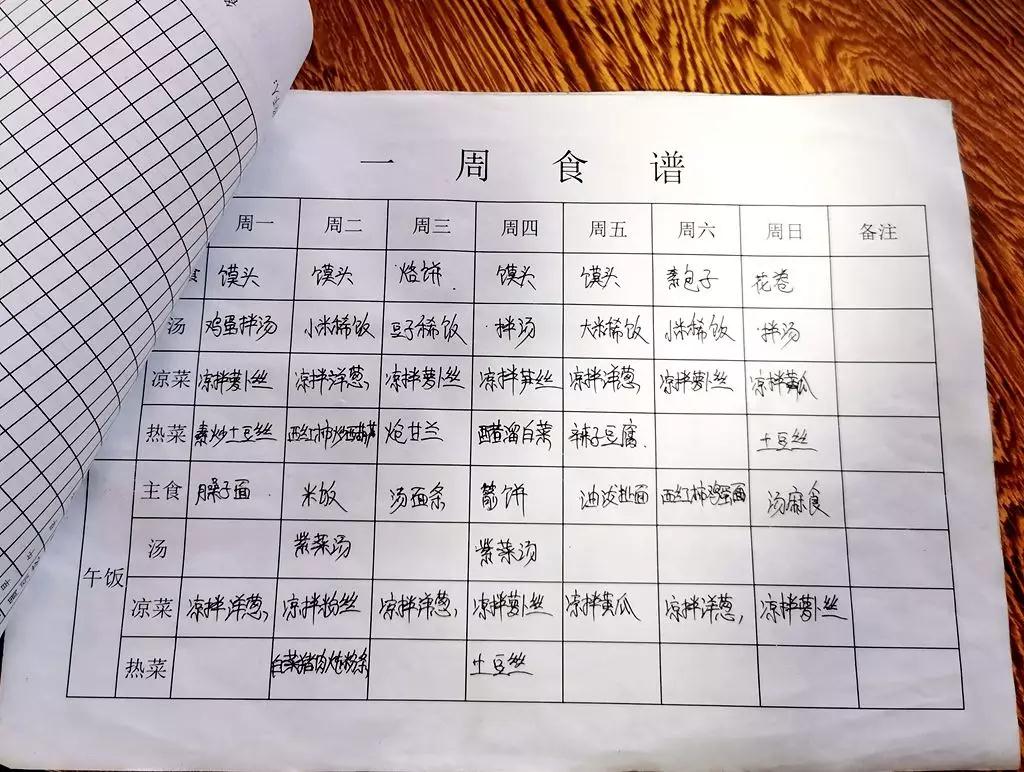 一周食谱
周一 周二 周三 周四 周五 周六 周日 备注
食 馍头 馍头 烙饼 馍头 馍头 素包子 花卷
汤 鸡蛋拌汤 小米稀饭 豆子稀饭 拌汤 大米稀饭 小米稀饭 拌汤
凉菜 凉拌萝卜丝 凉拌洋葱 凉拌萝卜丝 凉拌笋丝 凉拌洋葱 凉拌萝卜丝 凉拌黄瓜
热菜 素炒土豆丝 炝甘兰 醋溜白菜 辣子豆腐 土豆丝
午饭
主食 臊子面 米饭 汤面条 煎饼 油泼扯面 西红柿鸡蛋面 汤麻食
汤 紫菜汤 紫菜汤
凉菜 凉拌洋葱 凉拌粉丝 凉拌洋葱 凉拌萝卜丝 凉拌黄瓜 凉拌洋葱 凉拌萝卜丝
热菜 土豆丝